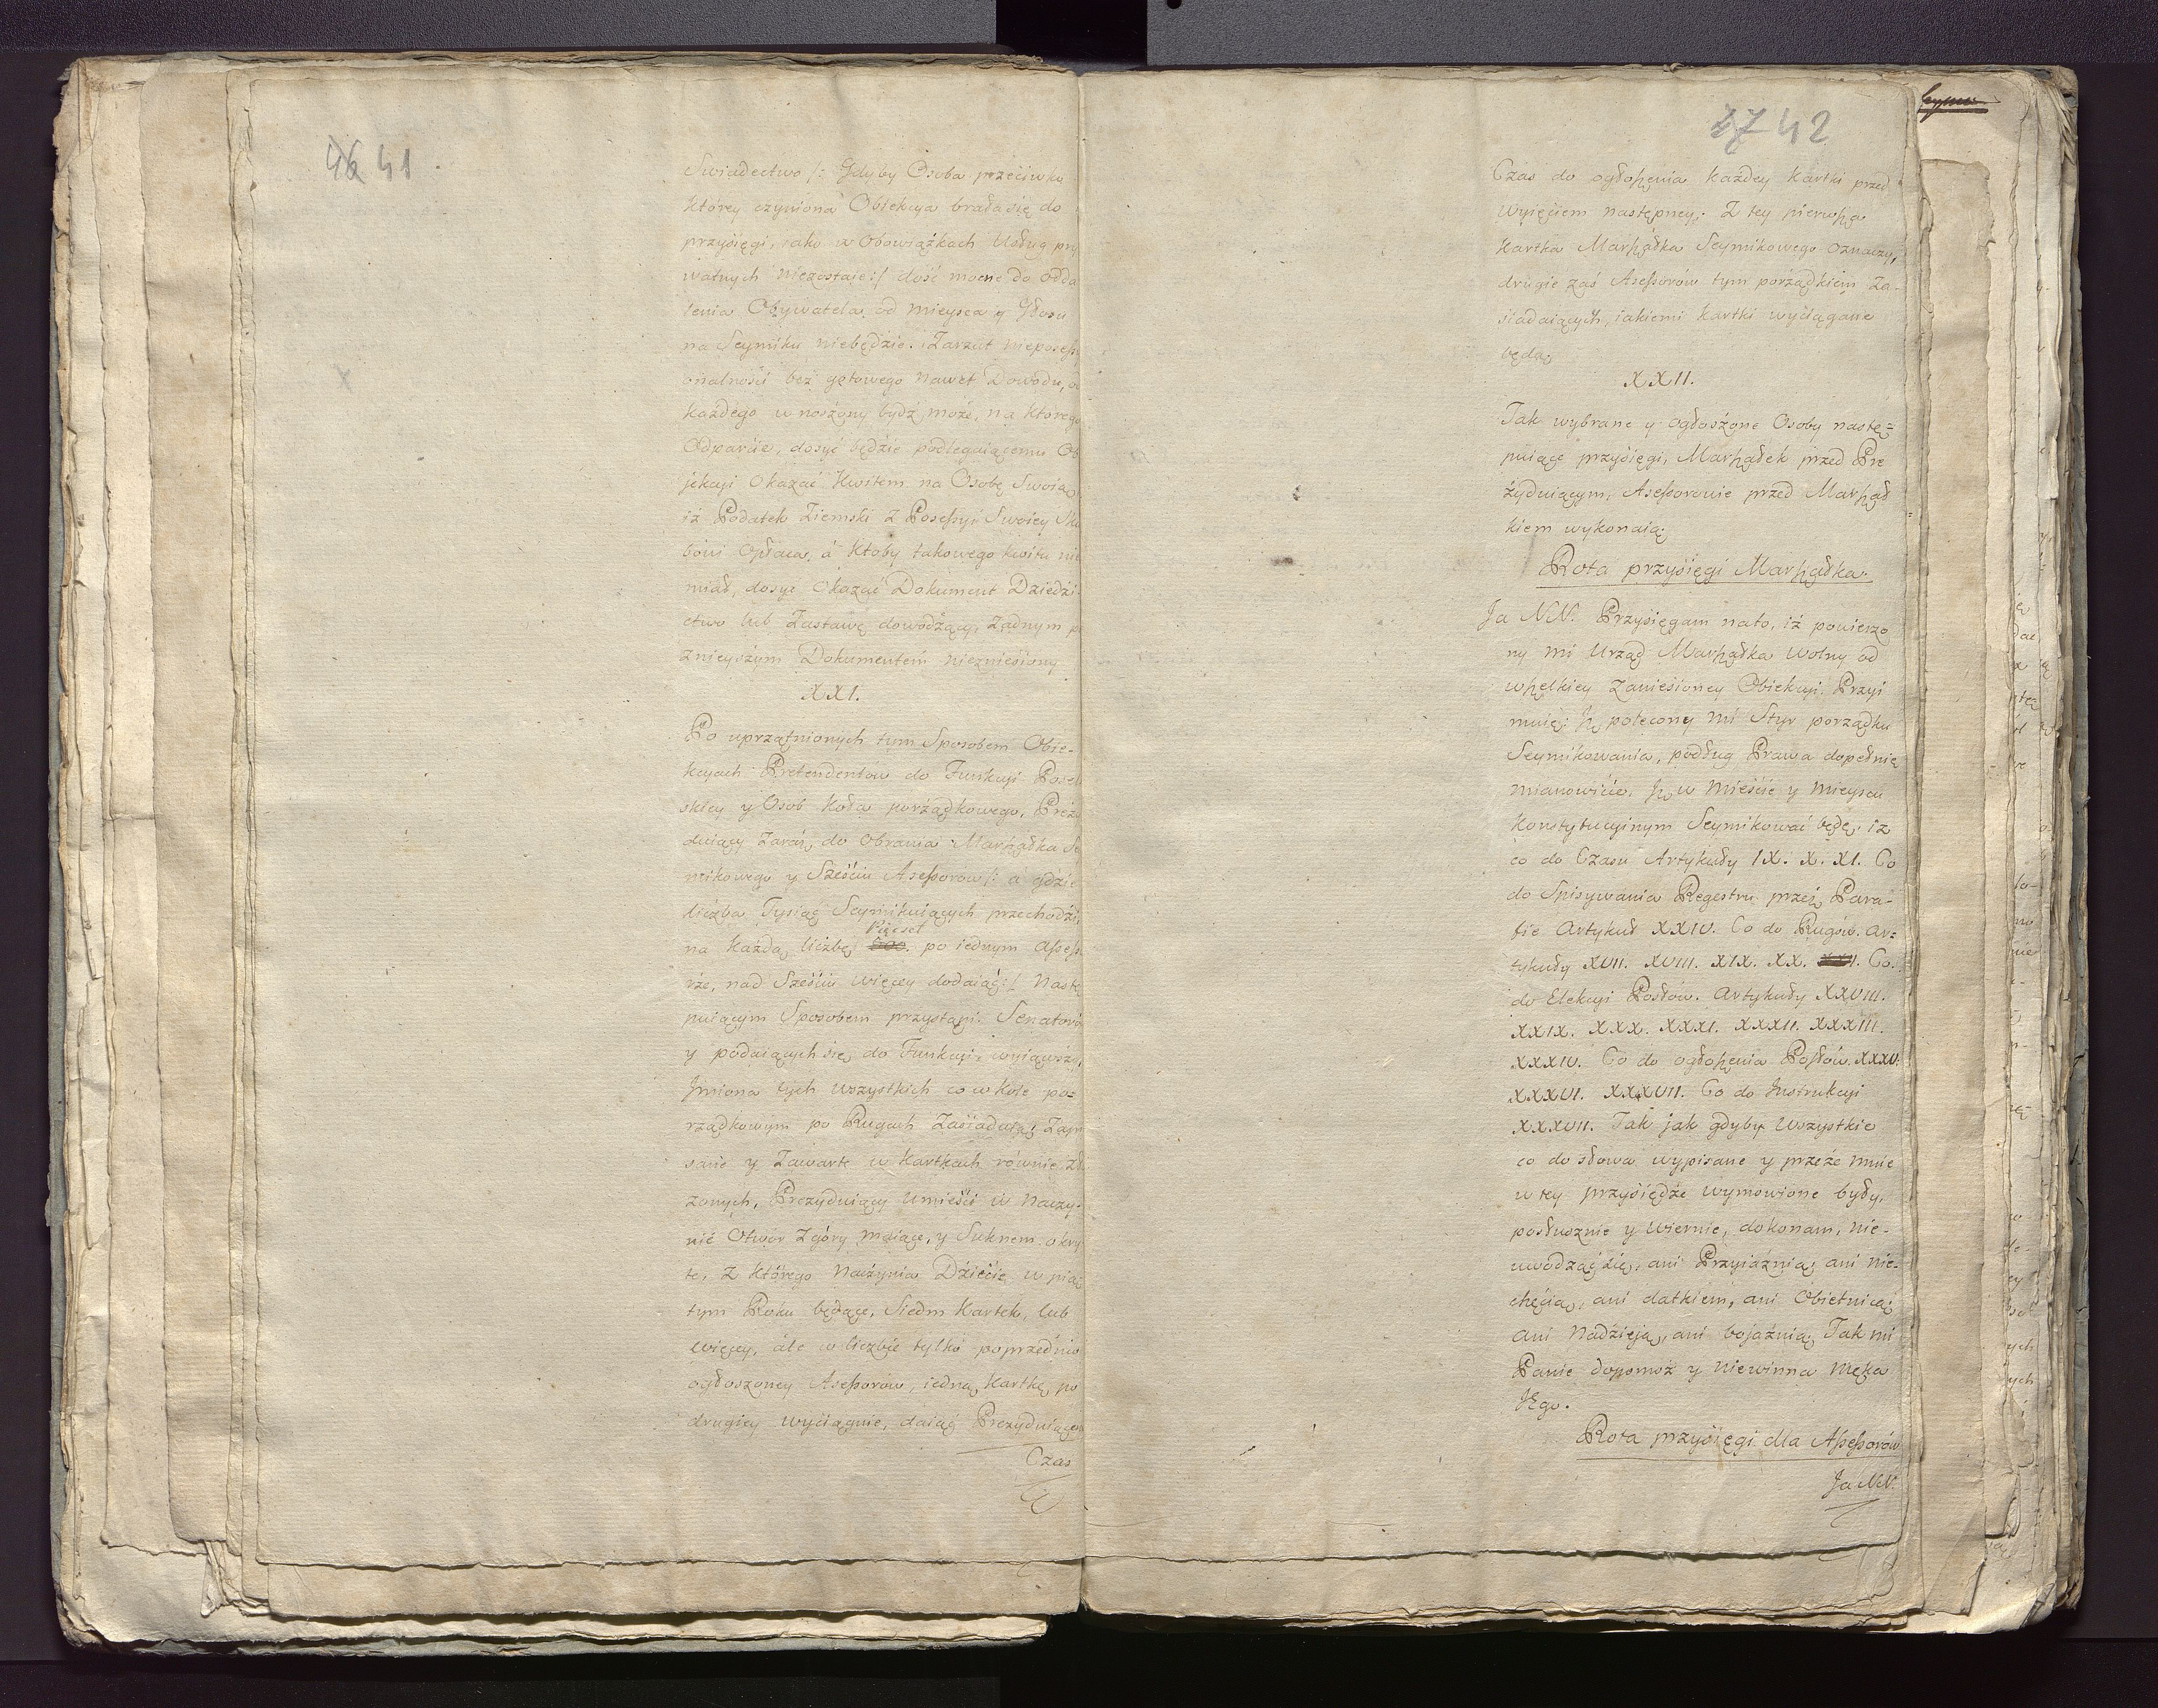 46 41
Swiadectwo /: Gdyby Osoba przeciwko
ktorey czyniona Obiekcya brała się do
przysięgi, iako w Obowiązkach Usług pry
watnych niezostaie :/ dość mocne do odda
lenia Obywatela od mieysca y Głosu
na Seymiku niebędzie. Zarzut nieposess
onalności bez gotowego nawet Dowodu, o
każdego wnoszony bydź może, na ktorego
Odparcie, dosyć będzie podlegaiącemu Ob
jekcyi Okazać Kwitem na Osobę Swoią,
iż Podatek Ziemski z Posessyi Swoiey Ska
bowi Opłaca, á Ktoby takowego kwitu nie
miał, dosyć Okazać Dokument Dziedzi
ctwo lub Zastawę dowodzący, żadnym p
znieyszym Dokumentem niezniesiony
XXI.
Po uprzątnionych tym Sposobem Obie-
kcyach Pretendentow do Funkcyi Posel
skiey y Osob Koła porządkowego, Prezy
duiący zaraz do Obrania Marszałka Se
mikowego y Sześciu Assessorow /: a gdzie
liczba Tysiąc Seymikuiących przechodzi,
Pięcset
na każdą liczbę 500. po iednym Assess
rze, nad Sześciu więcey dodaiąć :/ Nastę
puiącym Sposobem przystąpi. Senatorow
y podaiących się do Funkcyi wyiąwszy,
Imiona tych wszystkich co w Kole po=
rządkowym po Rugach Zasiaduią, Zapi
sane y Zawarte w Kartkach równie zło
zonych, Prezyduiący umieści w Naczy-
nie Otwor z góry maiące, y Suknem okry
te, z którego Naczynia Dziecie w pią
tym Roku będące, Siedm Kartek, lub
więcey, ale w liczbie tylko poprzednio
ogłoszoney Assessorow, iedną Kartkę po
drugiey wyciągnie, daiąć Prezyduiącem
Czas
17 42
Czas do ogłoszenia każdey Kartki przed
wyięciem następney. Z tey pierwsza
Kartka Marszałka Seymikowego oznaczy,
drugie zaś Assessorow tym porządkiem Za-
siadaiących, iakiemi Kartki wyciągane
będą.
XXII.
Tak wybrane y ogłoszone Osoby nastę=
puiące przysięgi, Marszałek przed Pre
zyduiącym, Assessorowie przed Marszał
kiem wykonaią.
Rota przysięgi Marszałka.
Ja NN. Przysięgam na to, iż powierzo
ny mi Urząd Marszałka wolny od
wszelkiey zaniesioney Obiekcyi, Przyi
muię: że polecony mi Styr porządku
Seymikowania, podług Prawa dopełnię
mianowicie, że w Mieście y Mieyscu
Konstytucyinym Seymikować będę. iż
co do Czasu Artykuły IX. X. XI. Co
do Spisywania Regestru przez Para-
fie Artykuł XXIV. Co do Rugow. Ar=
tykuły XVII. XVIII. XIX. XX. XXI. Co.
do Elekcyi Posłów. Artykuły XXVIII.
XXIX. XXX. XXXI. XXXII. XXXIII.
XXXIV. Co do ogłoszenia Posłów. XXXV.
XXXVI. XXXVII. Co do Instrukcyi
XXXVII. Tak jak gdyby Wszystkie
co do słowa wypisane y przeze mnie
w tey przysiędze wymowione były,
posłusznie y wiernie, dokonam, nie-
uwodząc się, ani Przyiaźnią, ani nie-
chęcią, ani datkiem, ani Obietnicą
ani Nadzieją, ani bojaźnią, Tak mi
Panie dopomoż y Niewinna Męka
JEgo.
Rota przysięgi dla Assessorów
Ja NN.